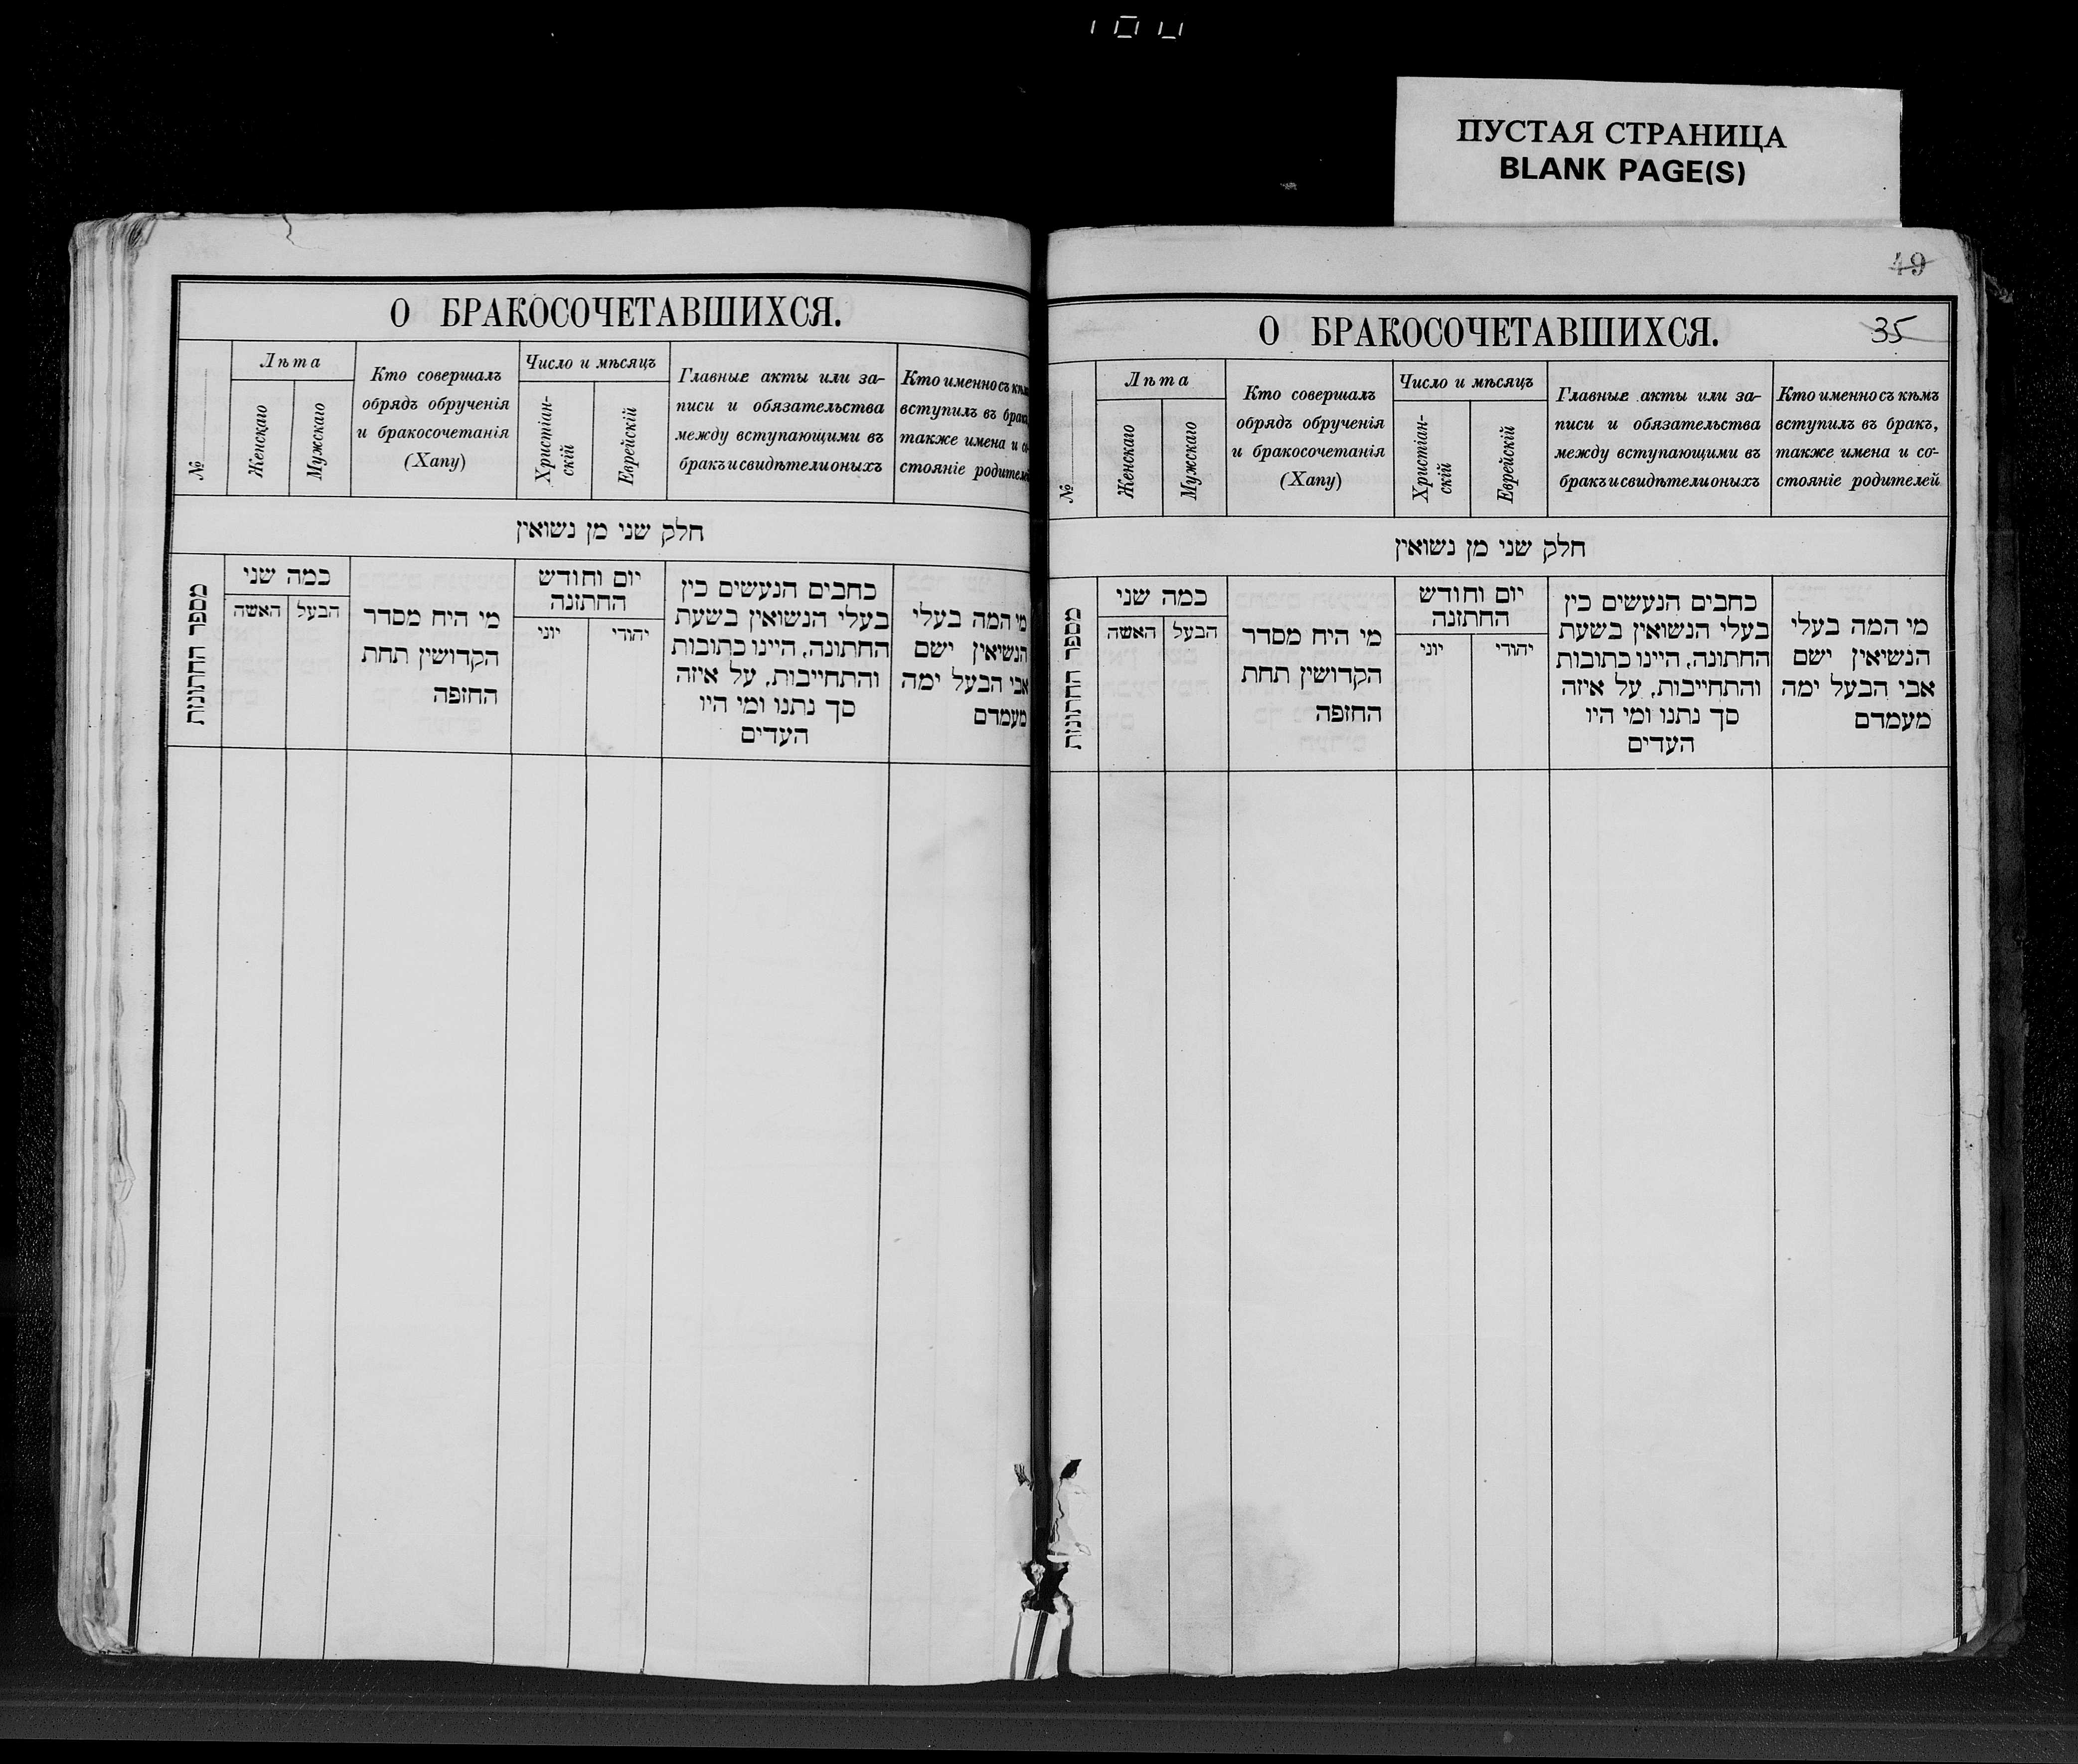 ПУСТАЯ СТРАНИЦА
BLANK PAGE(S)
О БРАКОСОЧЕТАВШИХСЯ.
№
Лѣта
Женскаго
Мужскаго
Кто совершалъ
обрядъ обрученія
и бракосочетанія
(Хапу)
Число и мѣсяцъ
Христіан-
скій
Еврейскій
Главные акты или за-
писи и обязательства
между вступающими въ
бракъ и свидѣтели оныхъ
Кто именно съ кѣмъ
вступилъ въ бракъ,
также имена и со-
стояніе родителей
חלק שני מן נשואין
מספר החתונות
כמה שני
האשה
הבעל
מי היח מסדר
הקדושין תחת
החופה
יום וחודש
החתונה
יוני
יהודי
כחבים הנעשים כין
בעלי הנשואין בשעת
החתונה, היינו כתובות
והתחייבות, על איזה
סך נתנו ומי היו
העדים
מי המה בעלי
הנשיאין ישם
אבי הבעל ימה
מעמדם
49
О БРАКОСОЧЕТАВШИХСЯ.
35
№
Лѣта
Женскаго
Мужскаго
Кто совершалъ
обрядъ обрученія
и бракосочетанія
(Хапу)
Число и мѣсяцъ
Христіан-
скій
Еврейскій
Главные акты или за-
писи и обязательства
между вступающими въ
бракъ и свидѣтели оныхъ
Кто именно съ кѣмъ
вступилъ въ бракъ,
также имена и со-
стояніе родителей
חלק שני מן נשואין
מספר החתונות
כמה שני
האשה
הבעל
מי היח מסדר
הקדושין תחת
החופה
יום וחודש
החתונה
יוני
יהודי
כחבים הנעשים כין
בעלי הנשואין בשעת
החתונה, היינו כתובות
והתחייבות, על איזה
סך נתנו ומי היו
העדים
מי המה בעלי
הנשיאין ישם
אבי הבעל ימה
מעמדם